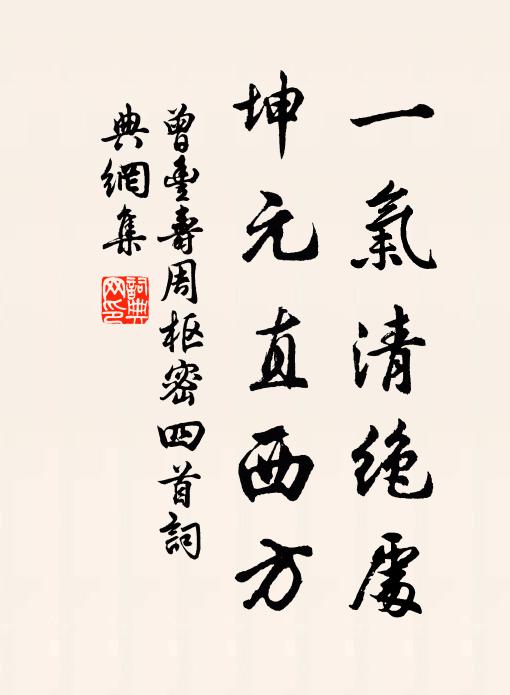 一氣清絕處
坤元直西方
曾豐壽周枢密四首詞
典網集
詞典
网印